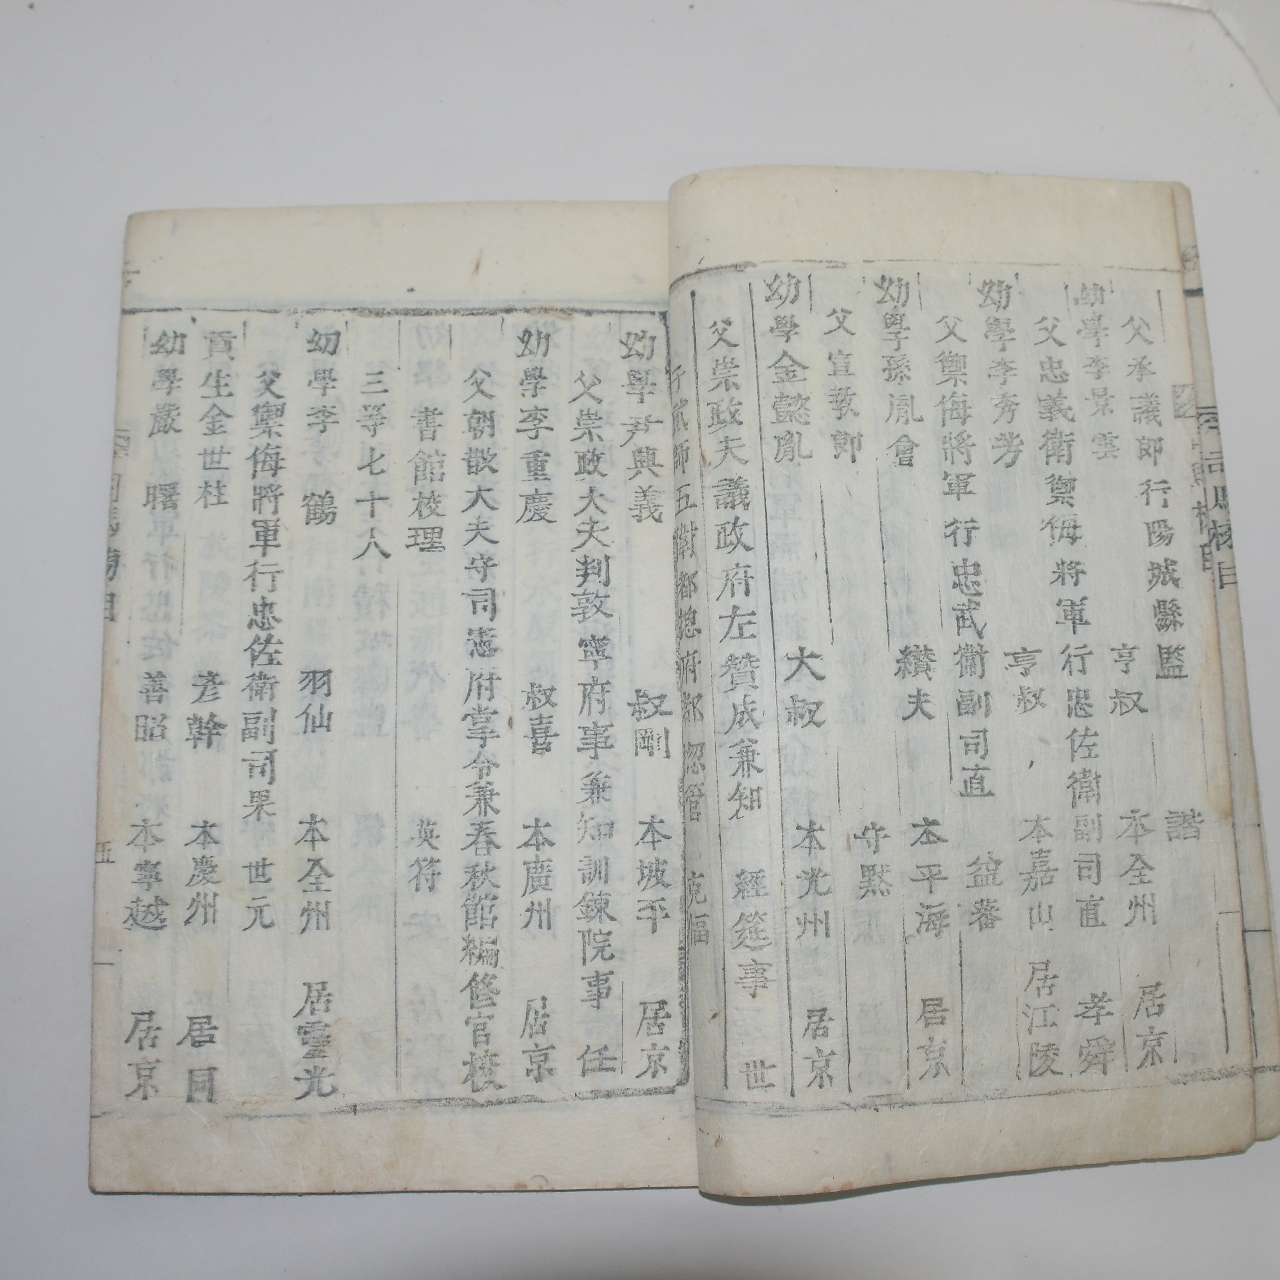 父承議郎行陽城縣監 諧
幼學李景雲 亨叔 本全州 居京
父忠義衛禦侮將軍行忠佐衛副司直 孝舜
幼學李秀芳 亨叔 本嘉山 居江陵
父禦侮將軍行忠武衛副司直 益蕃
幼學孫胤會 纘夫 本平海 居京
父宣敎郎 守默
幼學金懿胤 大叔 本光州 居京
父崇政大夫議政府左贊成兼知 經筵事 世
子貳師五衛都摠府都摠管 克福
幼學尹興義 叔剛 本坡平 居京
父崇政大夫判敦寧府事兼知訓鍊院事 任
幼學李重慶 叔喜 本廣州 居京
父朝散大夫守司憲府掌令兼春秋館編修官校
書館校理 英符
三等七十人
幼學李鶴 羽仙 本全州 居靈光
父禦侮將軍行忠佐衛副司果 世元
貢生金世柱 彥幹 本慶州 居同
幼學嚴曙 善昭 本寧越 居京
五